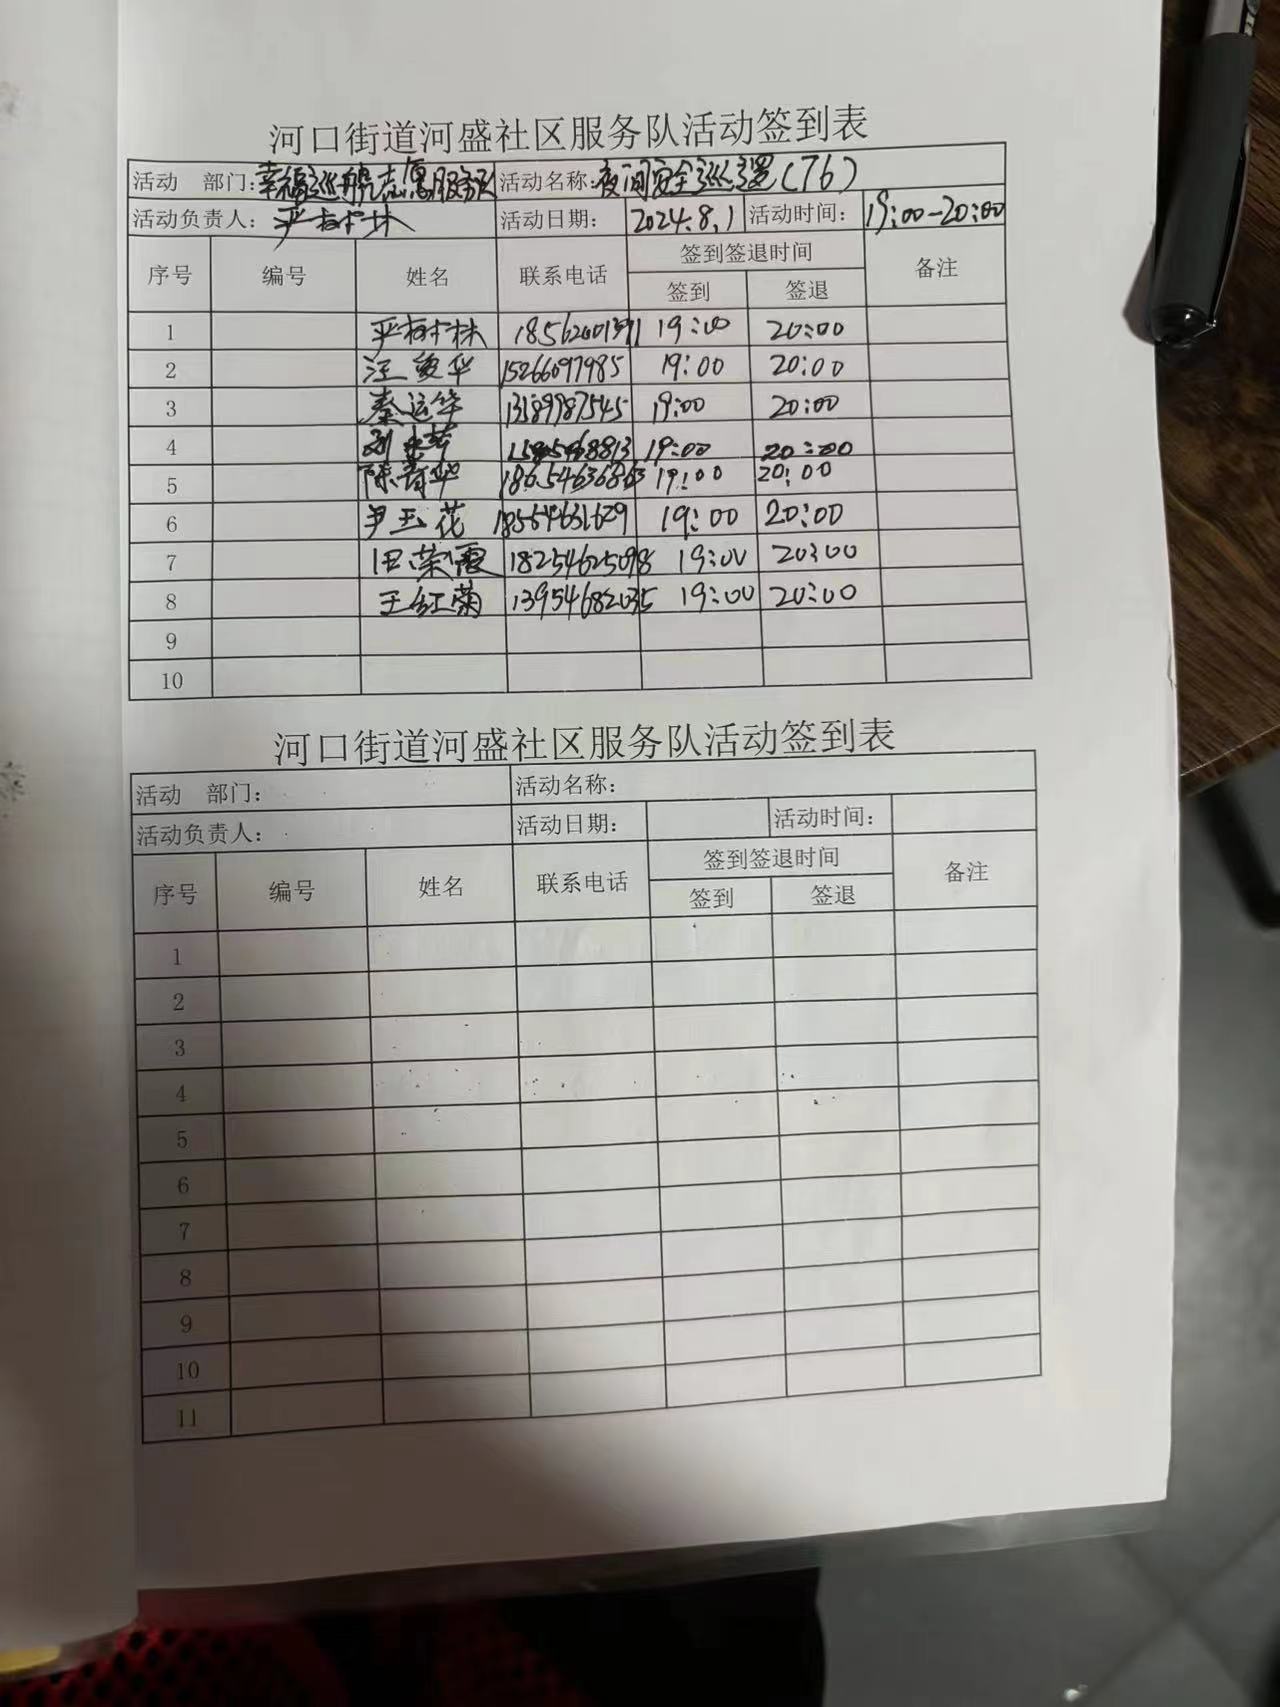 河口街道河盛社区服务队活动签到表
活动 部门：幸福巡航志愿服务队 活动名称：夜间安全巡逻（76）
活动负责人：严树林 活动日期： 2024.8.1 活动时间： 19:00-20:00
序号 编号 姓名 联系电话 签到签退时间 备注
签到 签退
1 严树林 19:00 20:00
2 15266097985 19:00 20:00
3 秦运华 13589987545 19:00 20:00
4 19:00 20:00
5 陈青华 19:00 20:00
6 尹玉花 18564631629 19:00 20:00
7 田荣霞 18254625098 19:00 20:00
8 王红菊 13954682035 19:00 20:00
9
10
河口街道河盛社区服务队活动签到表
活动 部门： 活动名称：
活动负责人： 活动日期： 活动时间：
序号 编号 姓名 联系电话 签到签退时间 备注
签到 签退
1
2
3
4
5
6
7
8
9
10
11